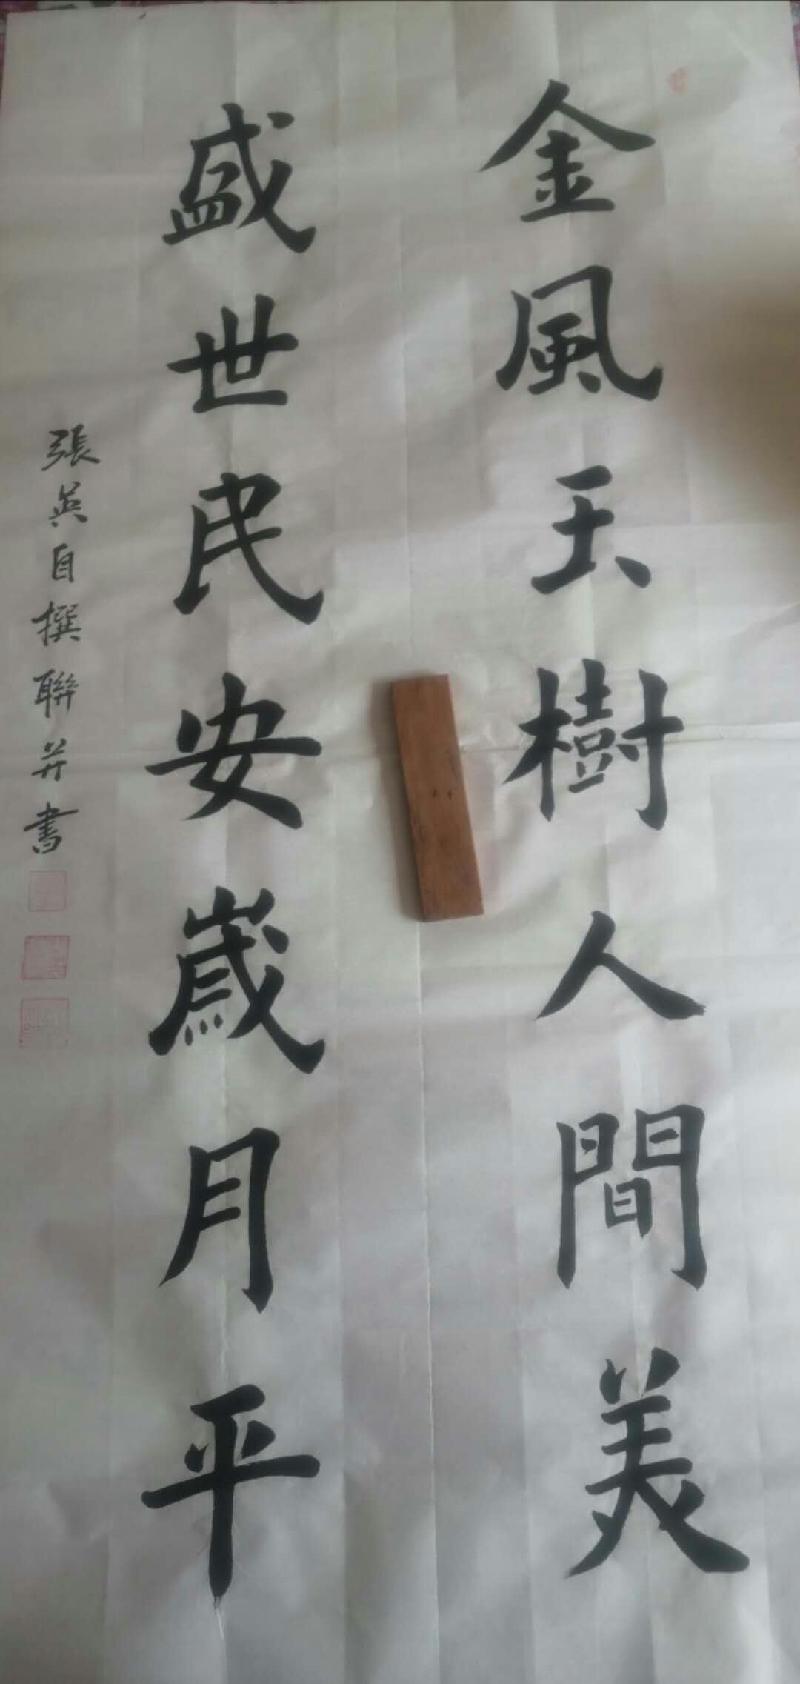 金風玉樹人間美
盛世民安歲月平
張英自撰聯并書